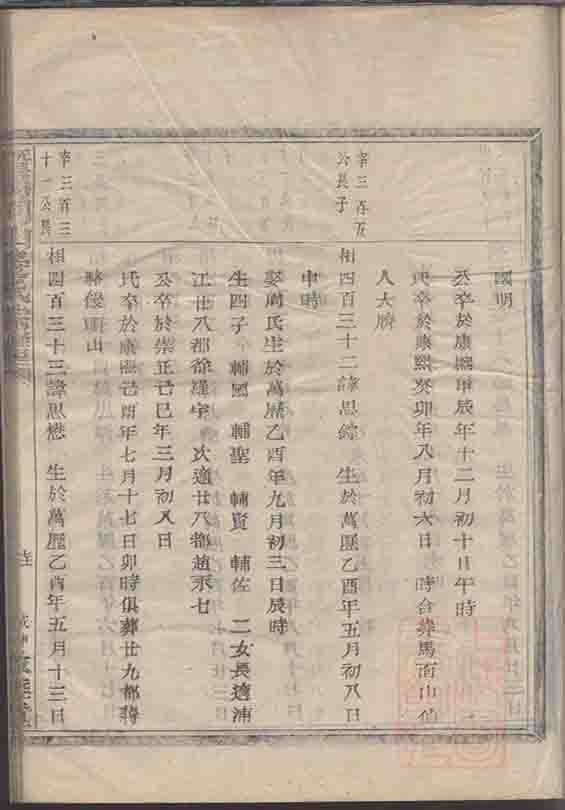 國明
公卒於康熙甲辰年十二月初十日午時
氏卒於康熙癸卯年八月初六日 時合葬馬面山仙
人大
孝三百
公長子
相四百三十二諱思綜 生於萬歷乙酉年五月初八日
申時
娶周氏生於萬歷乙酉年九月初三日辰時
生四子 輔國 輔聖 輔賢 輔佐 二女長適浦
江廿八都徐瓘宇 次適廿八都趙永七
公卒於崇正己巳年三月初八日
氏卒於康熙己酉年七月十七日卯時俱葬廿九都蔣
塢後頭山
孝三百三
十一公長
相四百三十三諱思懋 生於萬歷乙酉年五月十三日